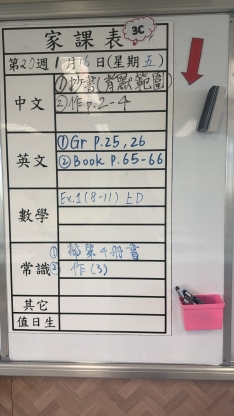 家課表 3C
第20週 1月16日(星期五)
中文
①抄書(背默範圍)
②作p.2-4
英文
①Gr P.25, 26
②Book P.65-66
數學
Ex.1(8-11) 上D
常識
① 第4冊書
② 作(3)
其它
值日生